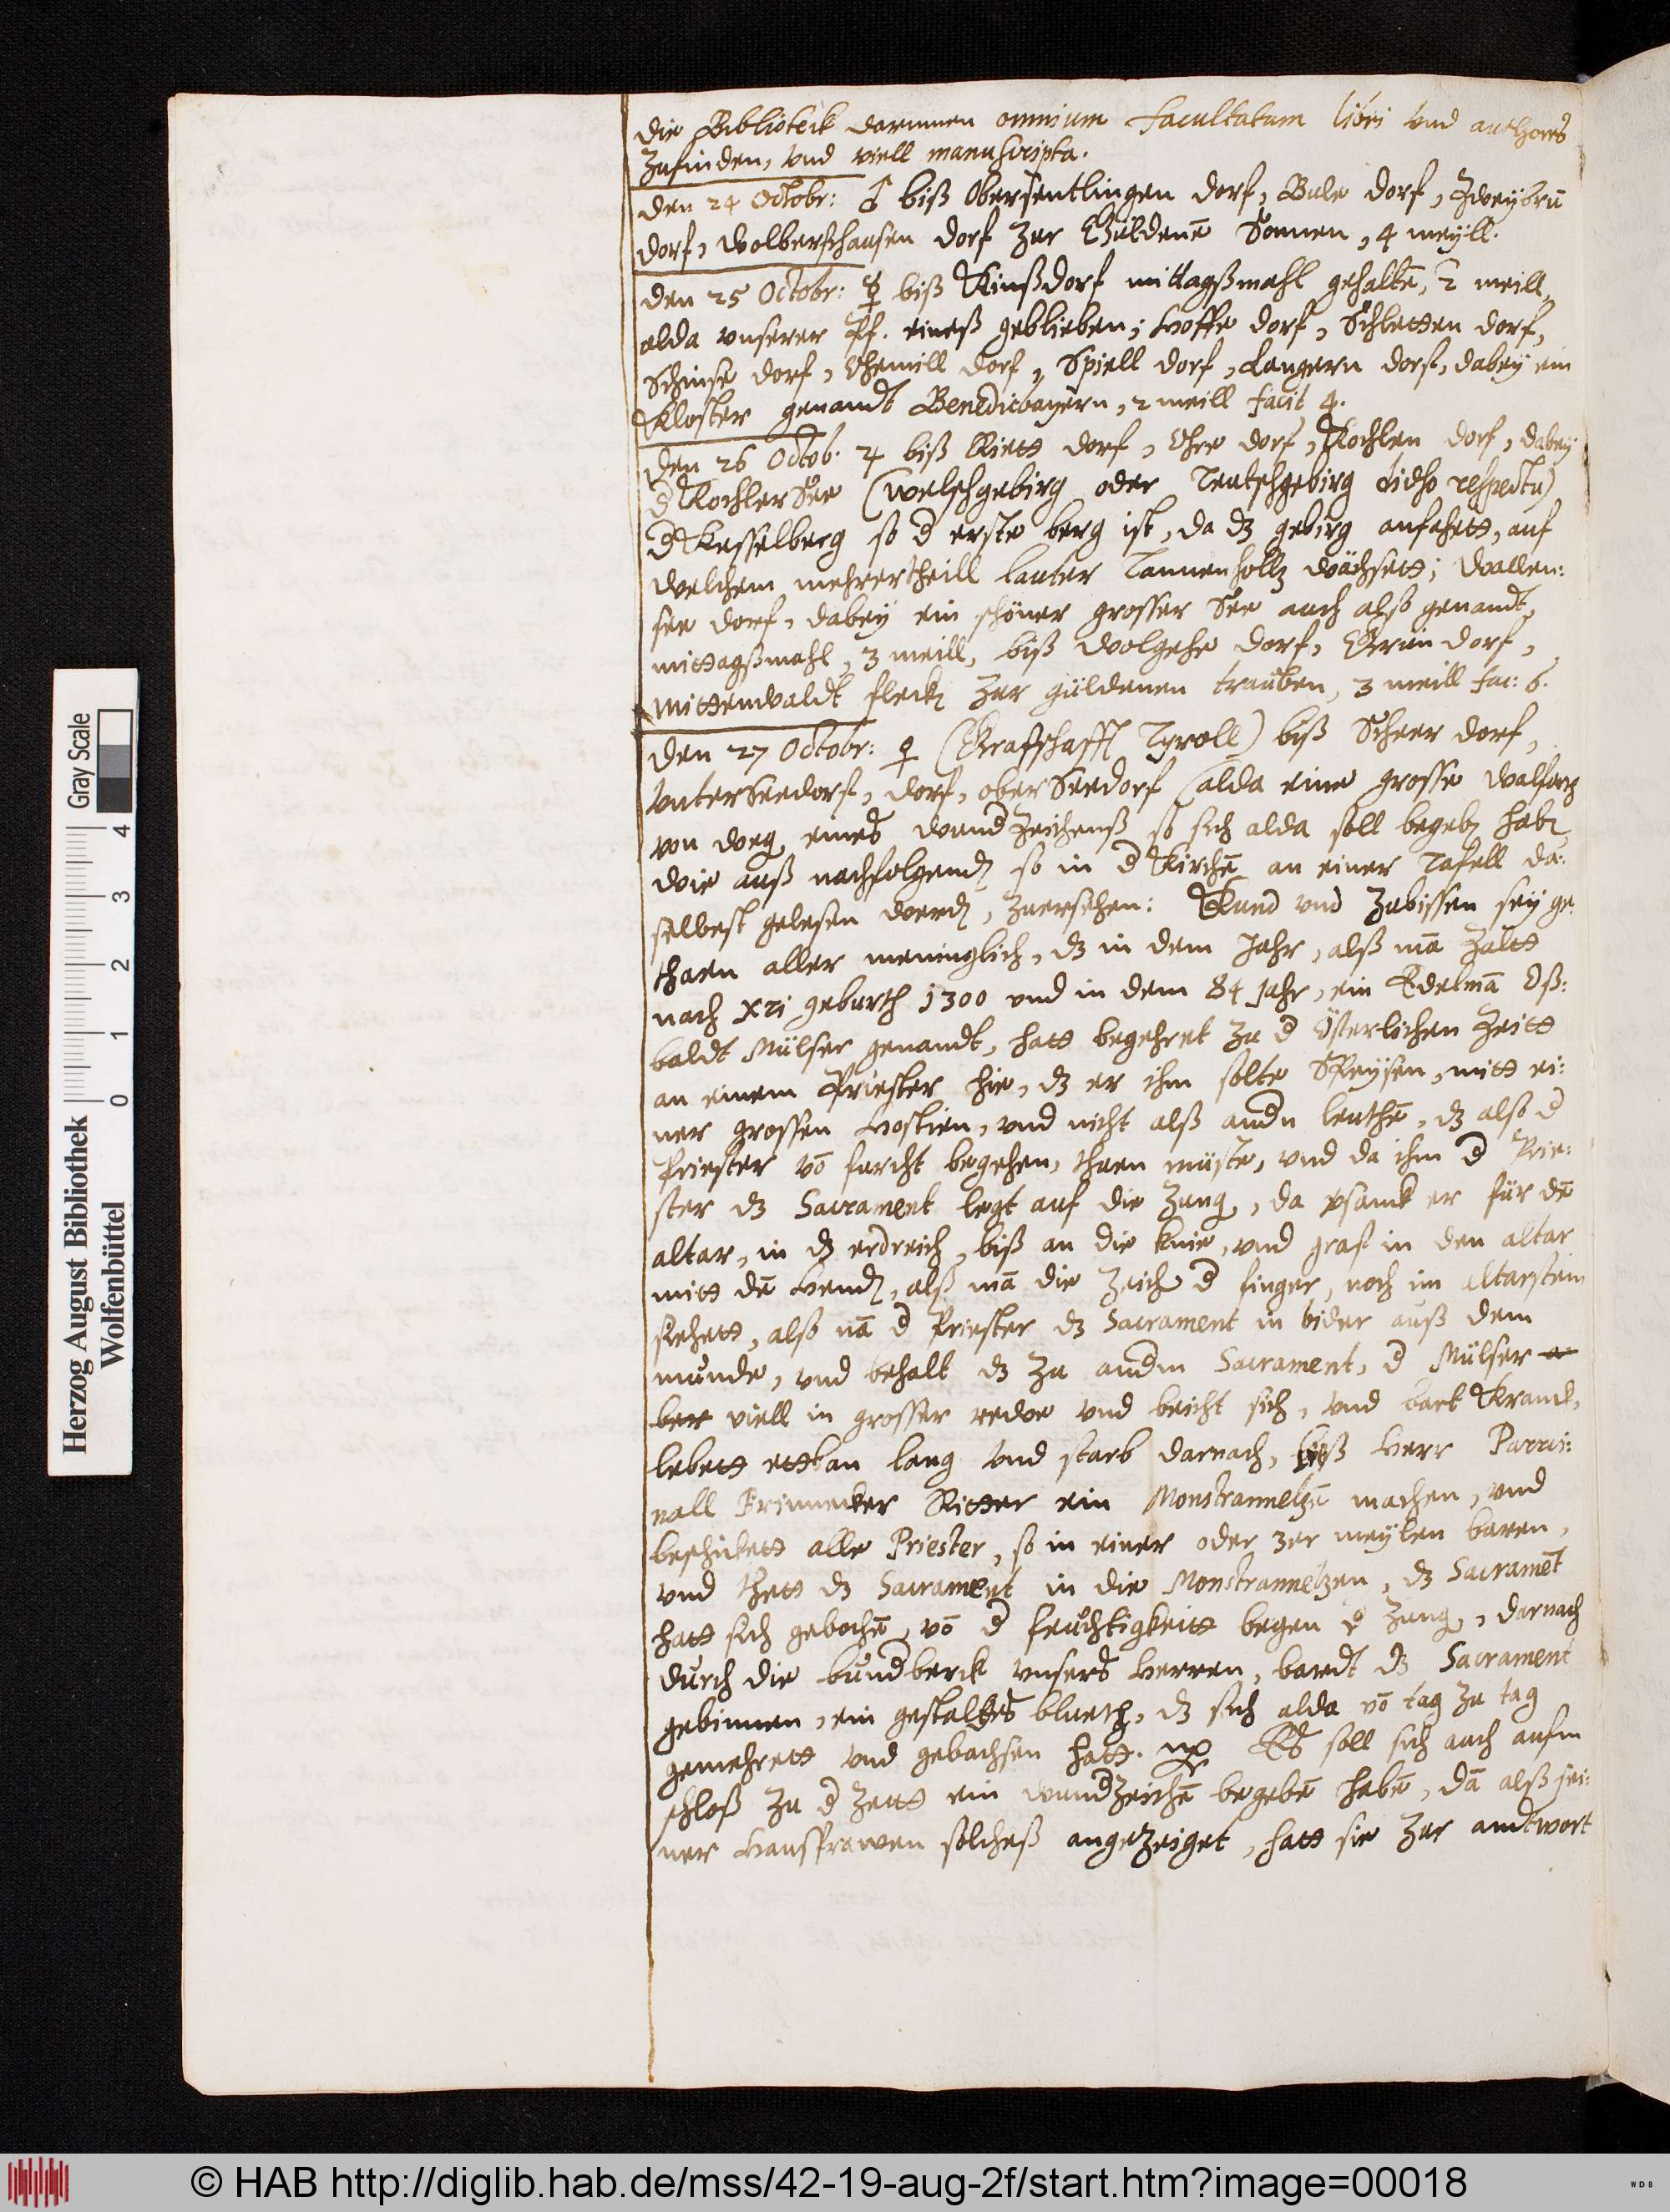 die Bibliotèck darinnen omnium Facultatum libri vnd authores
zufinden, vnd viell manuscripta.
den 24 Octobr: ♂ biß Obersentlingen dorf, Bale dorf, Zweybrū
dorf, Wolberschausen dorf zur Güldenē Sonnen, 4 meyll.
den 25 Octobr: ☿ biß Kinßdorf mittagßmahl gehaltē, 2 meill,
alda vnserer Pf. eineß geblieben; Hoffe dorf, Schletten dorf,
Schinse dorf, Ehemill dorf, Spiell dorf, Langern dorf, dabey ein
Kloster genandt Benedicbayern, 2 meill facit 4.
den 26 Octob. ♃ biß Riett dorf, Ehre dorf, Kochlen dorf, dabey
d Kochler See (welschgebirg oder Teutschgebirg diuso respectu)
d Kesselberg so d erste berg ist, da dz gebirg anfahett, auf
welchem mehrertheill lauter Tannenholtz wächsett; Wallen:
see dorf, dabey ein schöner grosser See auch alß genandt,
mittagßmahl, 3 meill, biß Wolgehe dorf, Grün dorf,
Mittenwaldt fleck zur güldenen trauben, 3 meill fac: 6.
den 27 Octobr: ♀ (Grafschafft Tyroll) biß Scheer dorf,
VnterSeedorf, dorf, oberSeedorf (alda eine grosse walfart
von weg eines wundzeichenß so sich alda soll begeb hab
wie auß nachfolgend so in d Kirchē an einer Tafell da:
selbest gelesen werd, zuersehen: Kund vnd Zubissen sey ge:
thaen aller meninglich, dz in dem Jahr, alß mā zältt
nach Xri geburth 1300 vnd in dem 84 Jahr, ein Edelmā Oß:
baldt Mülser genandt, hatt begehret zu d Österlichen Zeitt
an einem Priester hie, dz er ihm solte Speysen, mitt ei:
ner grossen Hostien, vnd nicht alß andn leuthē, dz alß d
Priester vō furcht begehen, thuen müste, vnd da ihm d Prie:
ster dz Sacrament legt auf die Zung, da vsanck er für dē
altar, in dz erdreich, biß an die knie, vnd graf in den altar
mitt dē Hend, alß mā die Zeich d finger, noch im altarstein
siehett, alß nā d Priester dz Sacrament im bider auß dem
munde, vnd behalt dz zu andm Sacrament, d Mülser a
ber viell in grosser redoe vnd beicht sich, vnd bart Kranck,
lebett ettban lang vnd starb darnach, ließ Herr Parci:
nall Frinnecker Ritter ein Monstrannetzē machen, vnd
beschickett alle Priester, so in einer oder zer meylen baren,
vnd thett dz Sacrament in die Monstrannetzen, dz Sacramēt
hatt sich gebochē, vō d feuchtigkeitt begen d Zung, darnach
durch die bundberck vnsers Herren, bardt dz Sacrament
gebinnen, ein gestaltes blueth, dz sich alda vō tag zu tag
gemehrett vnd gebachsen hatt. Es soll sich auch aufm
schloß zu d Zeitt ein wundzeichē begebē habē, dā alß sei:
ner Hausfrawen solcheß angezeiget, hatt sie zur andtwort
Herzog August Bibliothek
Wolfenbüttel
0 1 2 3 4
Gray Scale
© HAB http://diglib.hab.de/mss/42-19-aug-2f/start.htm?image=00018
W D B